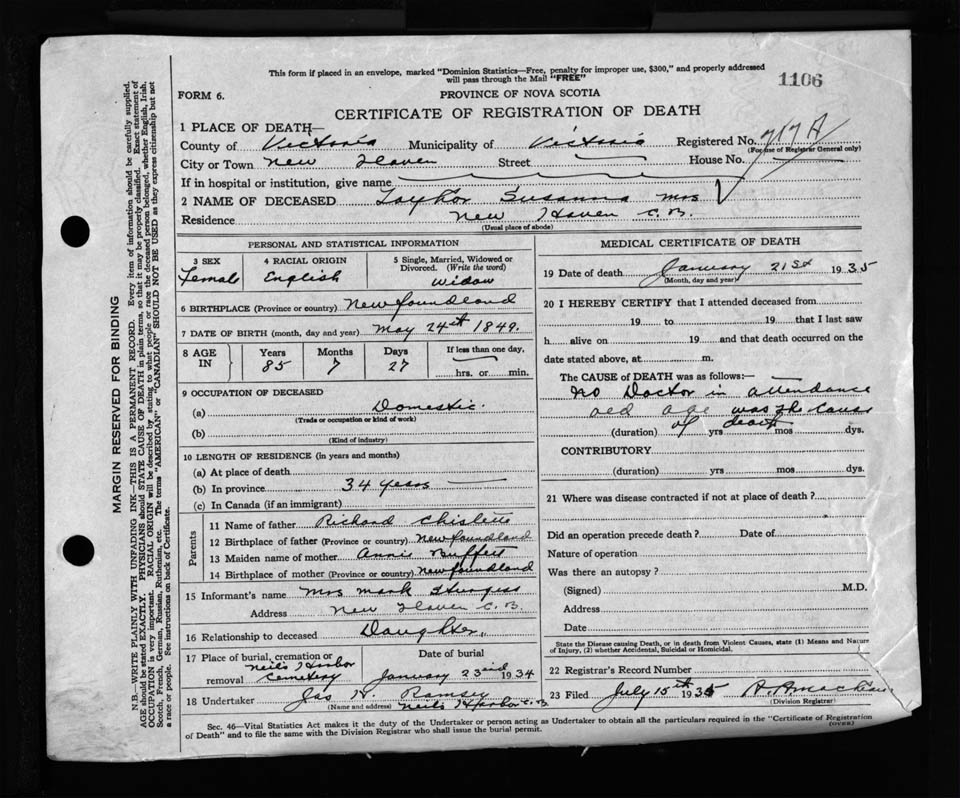 This form if placed in an envelope, marked "Dominion Statistics—Free, penalty for improper use, $300," and properly addressed
will pass through the Mail "FREE"
1106
FORM 6.
PROVINCE OF NOVA SCOTIA
CERTIFICATE OF REGISTRATION OF DEATH
1 PLACE OF DEATH—
County of Victoria Municipality of Victoria Registered No. 717A
(For use of Registrar General only)
City or Town New Haven Street House No.
If in hospital or institution, give name
2 NAME OF DECEASED Taylor Susanna Mrs
Residence New Haven C.B.
(Usual place of abode)
PERSONAL AND STATISTICAL INFORMATION
3 SEX 4 RACIAL ORIGIN 5 Single, Married, Widowed or
Divorced. (Write the word)
Female English Widow
6 BIRTHPLACE (Province or country) Newfoundland
7 DATE OF BIRTH (month, day and year) May 24th 1849.
8 AGE IN Years Months Days If less than one day,
85 7 27 hrs. or min.
9 OCCUPATION OF DECEASED
(a) Domestic
(Trade or occupation or kind of work)
(b)
(Kind of industry)
10 LENGTH OF RESIDENCE (in years and months)
(a) At place of death
(b) In province 34 years
(c) In Canada (if an immigrant)
Parents
11 Name of father Richard Chislett
12 Birthplace of father (Province or country) Newfoundland
13 Maiden name of mother Annie Buffett
14 Birthplace of mother (Province or country) Newfoundland
15 Informant's name Mrs Mark Sturgess
Address New Haven C.B.
16 Relationship to deceased Daughter
17 Place of burial, cremation or
removal Neils Harbor
Cemetery
Date of burial
January 23rd 1934
18 Undertaker Jas H. Ramsey
(Name and address) Neils Harbor C.B.
MEDICAL CERTIFICATE OF DEATH
19 Date of death January 21st 1935
(Month, day and year)
20 I HEREBY CERTIFY that I attended deceased from
19 to 19 that I last saw
h alive on 19 and that death occurred on the
date stated above, at m.
The CAUSE OF DEATH was as follows:—
No Doctor in attendance
old age was the cause
of death
(duration) yrs mos dys.
CONTRIBUTORY
(duration) yrs mos dys.
21 Where was disease contracted if not at place of death?
Did an operation precede death? Date of
Nature of operation
Was there an autopsy?
(Signed) M.D.
Address
Date
State the Disease causing Death, or in death from Violent Causes, state (1) Means and Nature
of Injury, (2) whether Accidental, Suicidal or Homicidal.
22 Registrar's Record Number
23 Filed July 15th 1935
(Division Registrar)
Sec. 46—Vital Statistics Act makes it the duty of the Undertaker or person acting as Undertaker to obtain all the particulars required in the "Certificate of Registration
of Death" and to file the same with the Division Registrar who shall issue the burial permit.
(OVER)
MARGIN RESERVED FOR BINDING
N.B.—WRITE PLAINLY WITH UNFADING INK—THIS IS A PERMANENT RECORD. Every item of information should be carefully supplied.
AGE should be stated EXACTLY. PHYSICIANS should STATE CAUSE OF DEATH in plain terms, so that it may be properly classified. Exact statement of
OCCUPATION is very important. RACIAL ORIGIN will be described by stating to what people or race the deceased person belonged, whether English, Irish,
Scotch, French, German, Russian, Ruthenian, etc. The terms "AMERICAN" or "CANADIAN" SHOULD NOT BE USED as they express citizenship but not
a race or people. See instructions on back of Certificate.